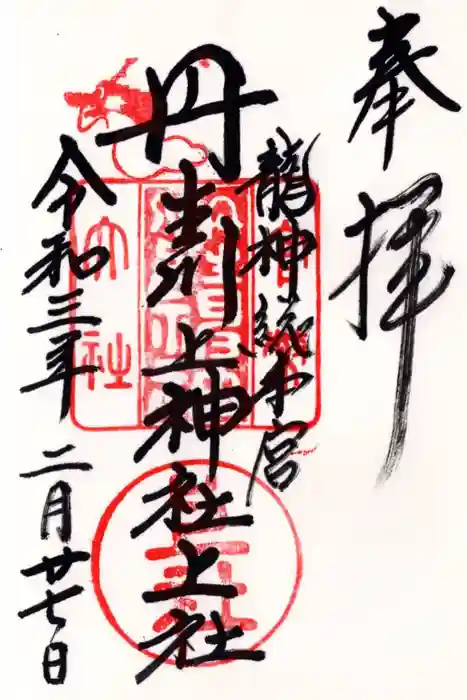 奉拝
龍神総本宮
丹生川上神社上社
令和三年 二月廿七日
上社